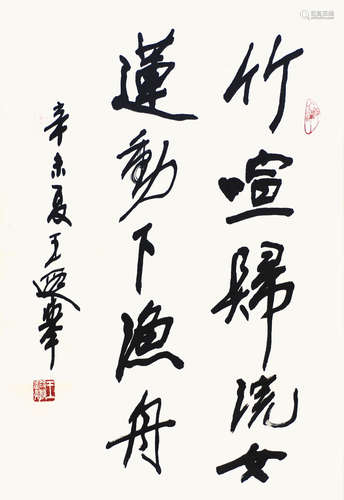 竹喧歸浣女
蓮動下漁舟
辛未夏王遐舉